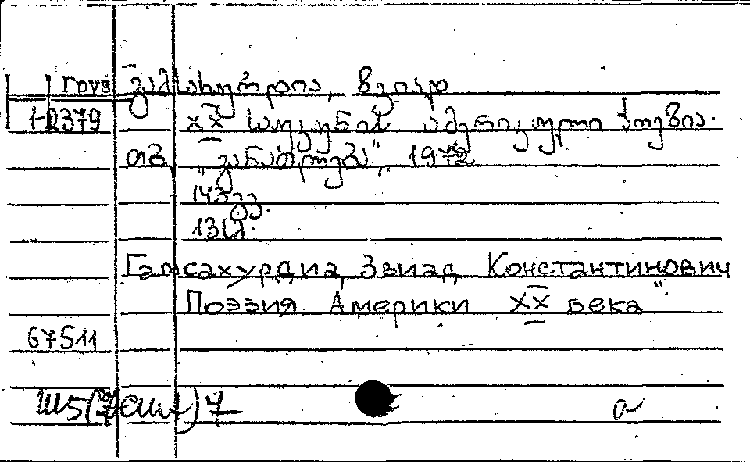 Груз გამსახურდია, ზვიად
1-2379 XX საუკუნის ამერიკული პოეზია.
თბ. „განათლება", 1972
143 გვ.
Гамсахурдиа, Звиад Константинович
Поэзия Америки XX века"
67511
Ш5(7сша)7
а